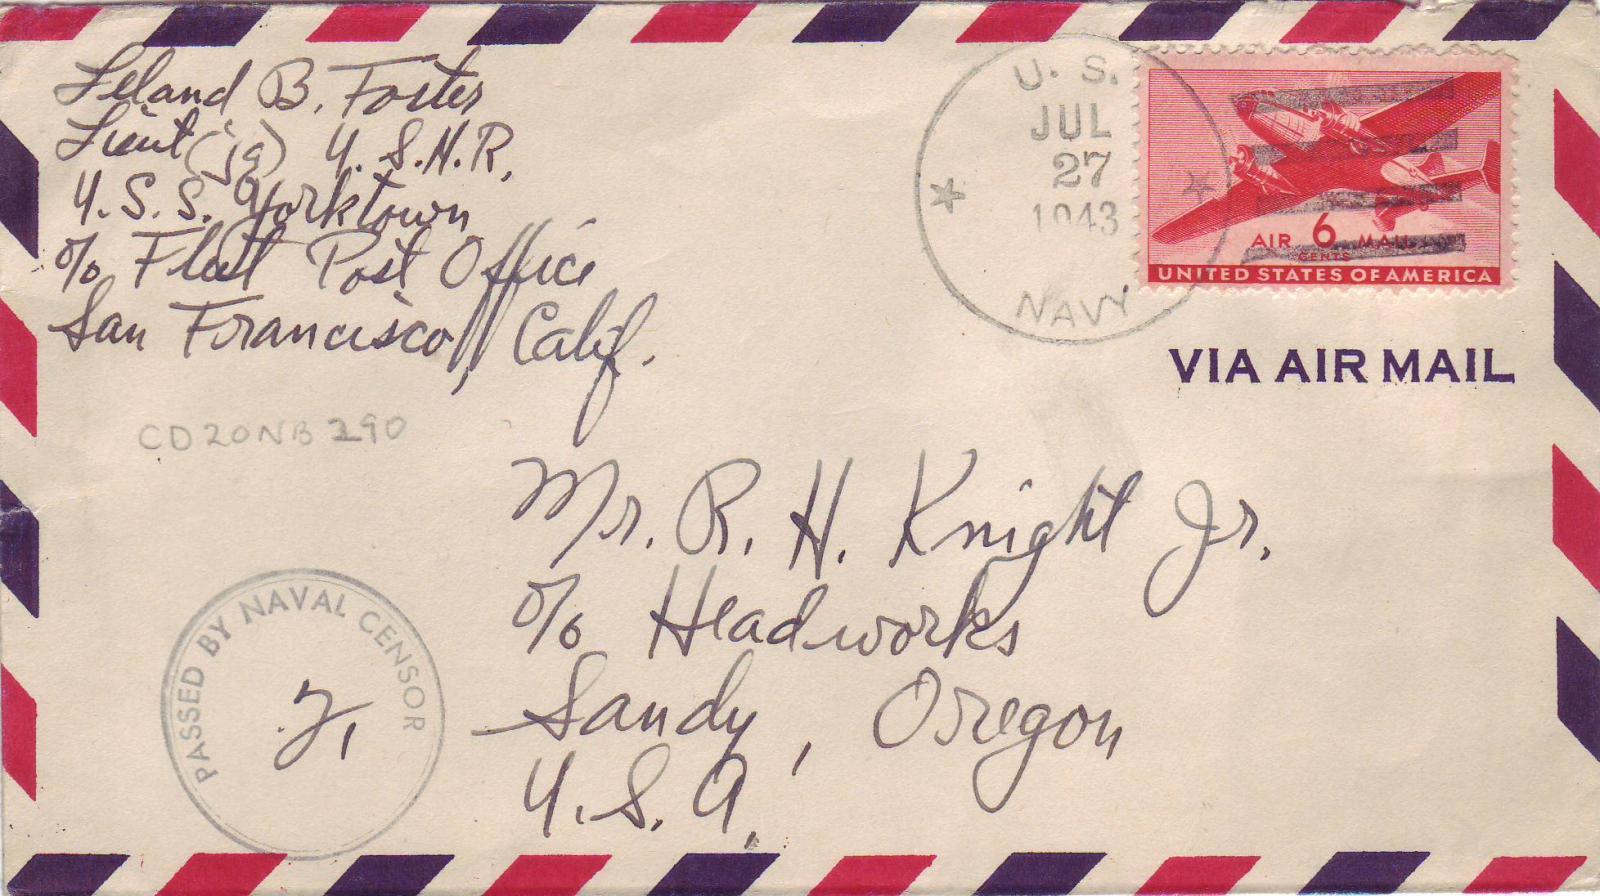 Leland B. Foster
Lieut (jg) U.S.N.R.
U.S.S. Yorktown
c/o Fleet Post Office
San Francisco, Calif.
U. S.
JUL
27
1943
NAVY
AIR 6 MAIL
CENTS
UNITED STATES OF AMERICA
VIA AIR MAIL
CD20NB290
Mr. R. H. Knight Jr.
c/o Headworks
Sandy, Oregon
U.S.A.
PASSED BY NAVAL CENSOR